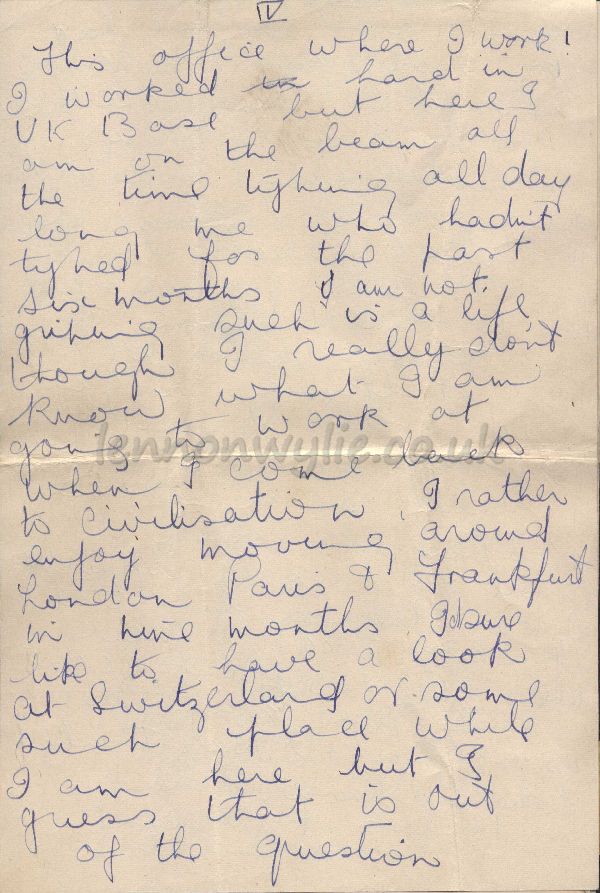 IV
This office where I work!
I worked in hard in
UK Base but here I
am on the beam all
the time typing all day
long me who hadn't
typed for the past
six months I am not
griping such is a life,
though I really don't
know what I am
going to work at
lennonwylie.co.uk
when I come back
to civilisation, I rather
enjoy moving around
London Paris & Frankfurt
in nine months. I'd sure
like to have a look
at Switzerland or some
such place while
I am here but I
guess that is out
of the question